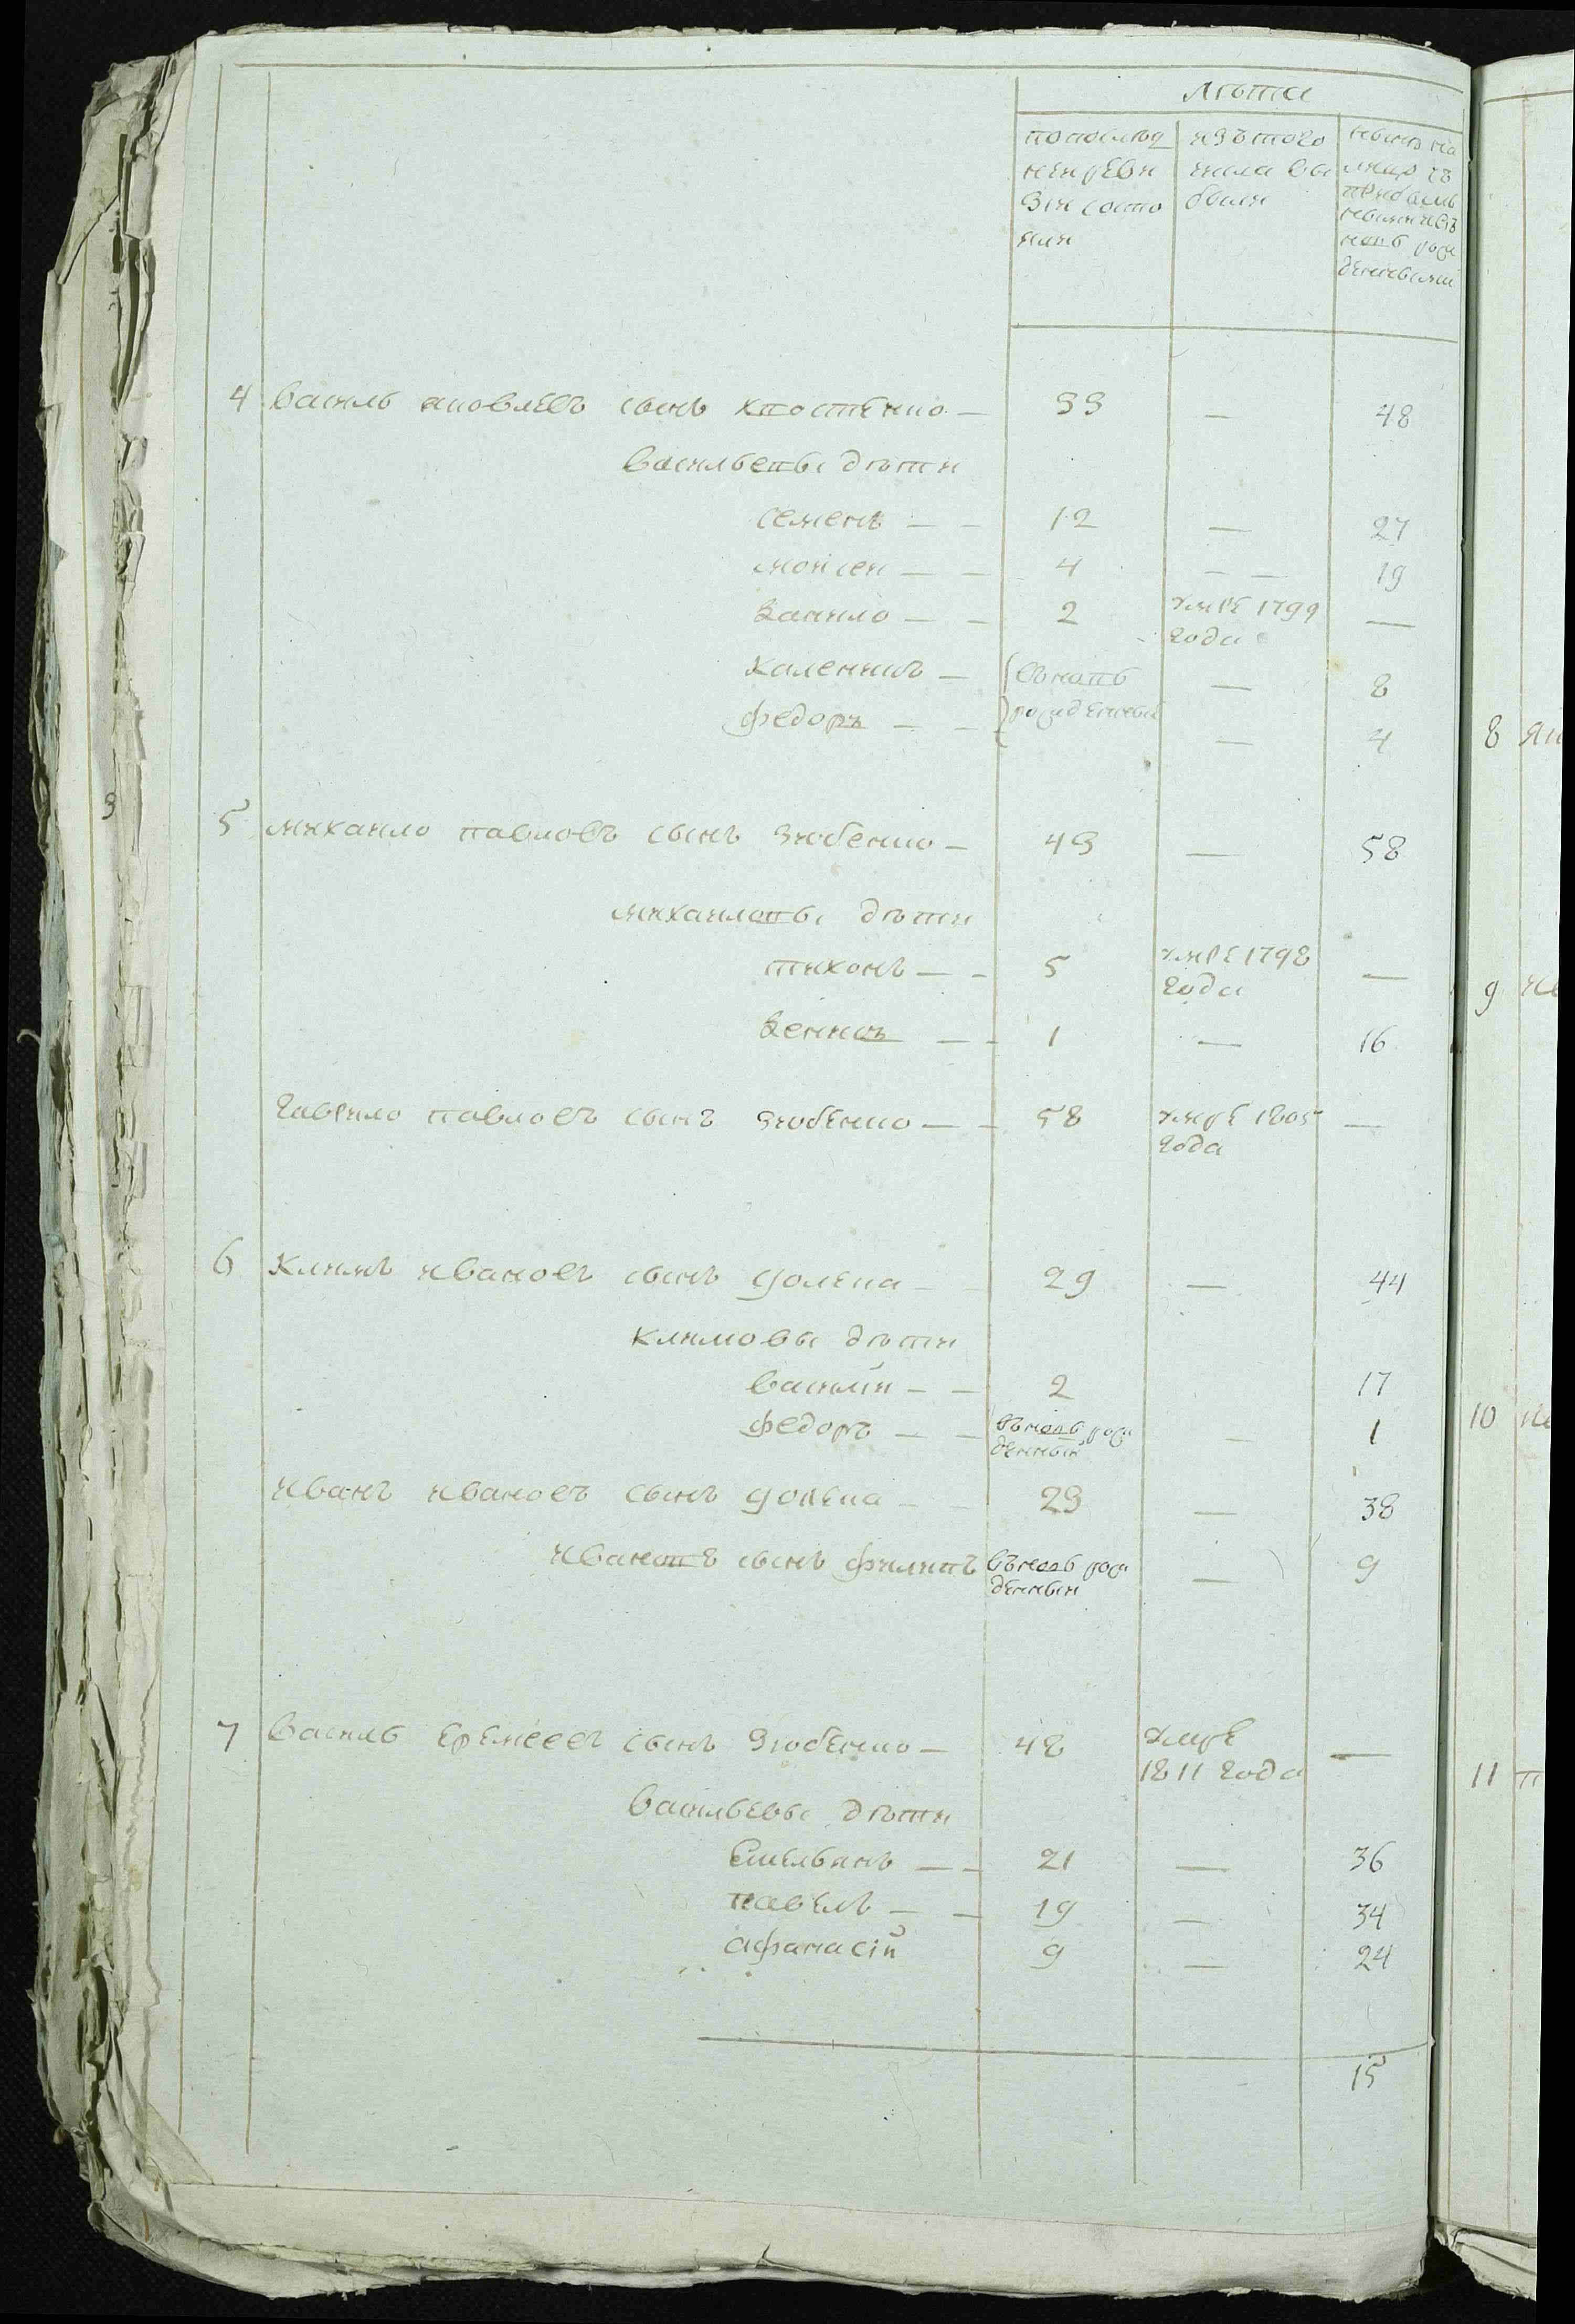 Лѣта
по послед
ней реви
зіи состо
яли
изъ того
числа вы
были
нынѣ на
лицо съ
прибылы
ми и въ
новь рож
денными
4 Василь Яковлевъ сынъ Костенко — 33 — 48
Васильевы дѣти
Семенъ — — 12 — 27
Моисей — — 4 — — 19
Данило — — 2 умре 1799 —
года
Каленикъ — въновь — 8
рожденные
Федоръ — — — 4
5 Михайло Павловъ сынъ Зюбенко — 43 — 58
Михайловы дѣти
Тихонъ — — 5 умре 1798 —
года
Денисъ — — 1 — 16
Гаврило Павловъ сынъ Зюбенко — — 58 умре 1805 —
года
6 Климъ Ивановъ сынъ — — 29 — 44
Климовы дѣти
Василій — — 2 17
Федоръ — — въновь рож — 1
денный
Иванъ Ивановъ сынъ — — 23 — 38
Ивановъ сынъ Филипъ въновь рож — 9
денный
7 Василь Еремеевъ сынъ Зюбенко — 48 умре —
1811 года
Васильевы дѣти
Емельянъ — — 21 — 36
Павелъ — — 19 — 34
Афанасій 9 — 24
15
8
9
10
11